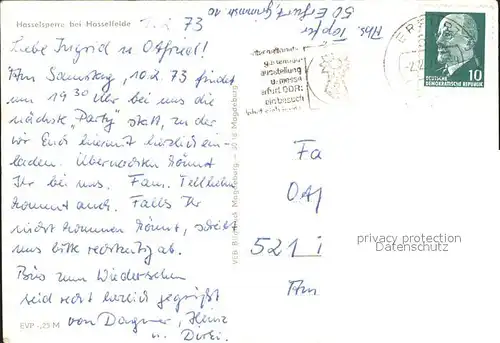 Hasselsperre bei Hasselfelde
1.2.73
Liebe Ingrid u. Otfried!
Am Samstag, 10.2.73 findet
um 19 30 Uhr bei uns die
nächste "Party statt, zu der
wir Euch hiermit herzlich ein-
laden. Übernachten könnt
Ihr bei uns. Fam.
kommt auch. Falls Ihr
nicht kommen könnt, schreibt
uns bitte rechtzeitig ab.
Bis zum Wiedersehen
seid recht herzlich gegrüßt
von Dagmar, Heinz
u.
EVP -,25 M
VEB Bild und Heimat Magdeburg
Abs. Töpfer
50 Erfurt
ausstellung
u. messe
erfurt DDR
ein besuch
10
DEUTSCHE
DEMOKRATISCHE REPUBLIK
Fa
521
Am
privacy protection
Datenschutz